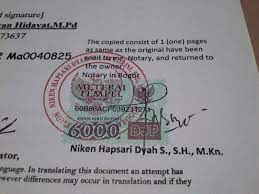 d signature]
an Hidayat, M.Pd
73637
The copied consist of 1 (one) pages
as same as the original have been
Notary, and returned to
the owner.
Notary in Bogor
Ma0040825
METERAI
TEMPEL
6000
Niken Hapsari Dyah S., S.H., M.Kn.
ator,
guage. In translating this document an attempt has
owever differences may occur in translation and if they